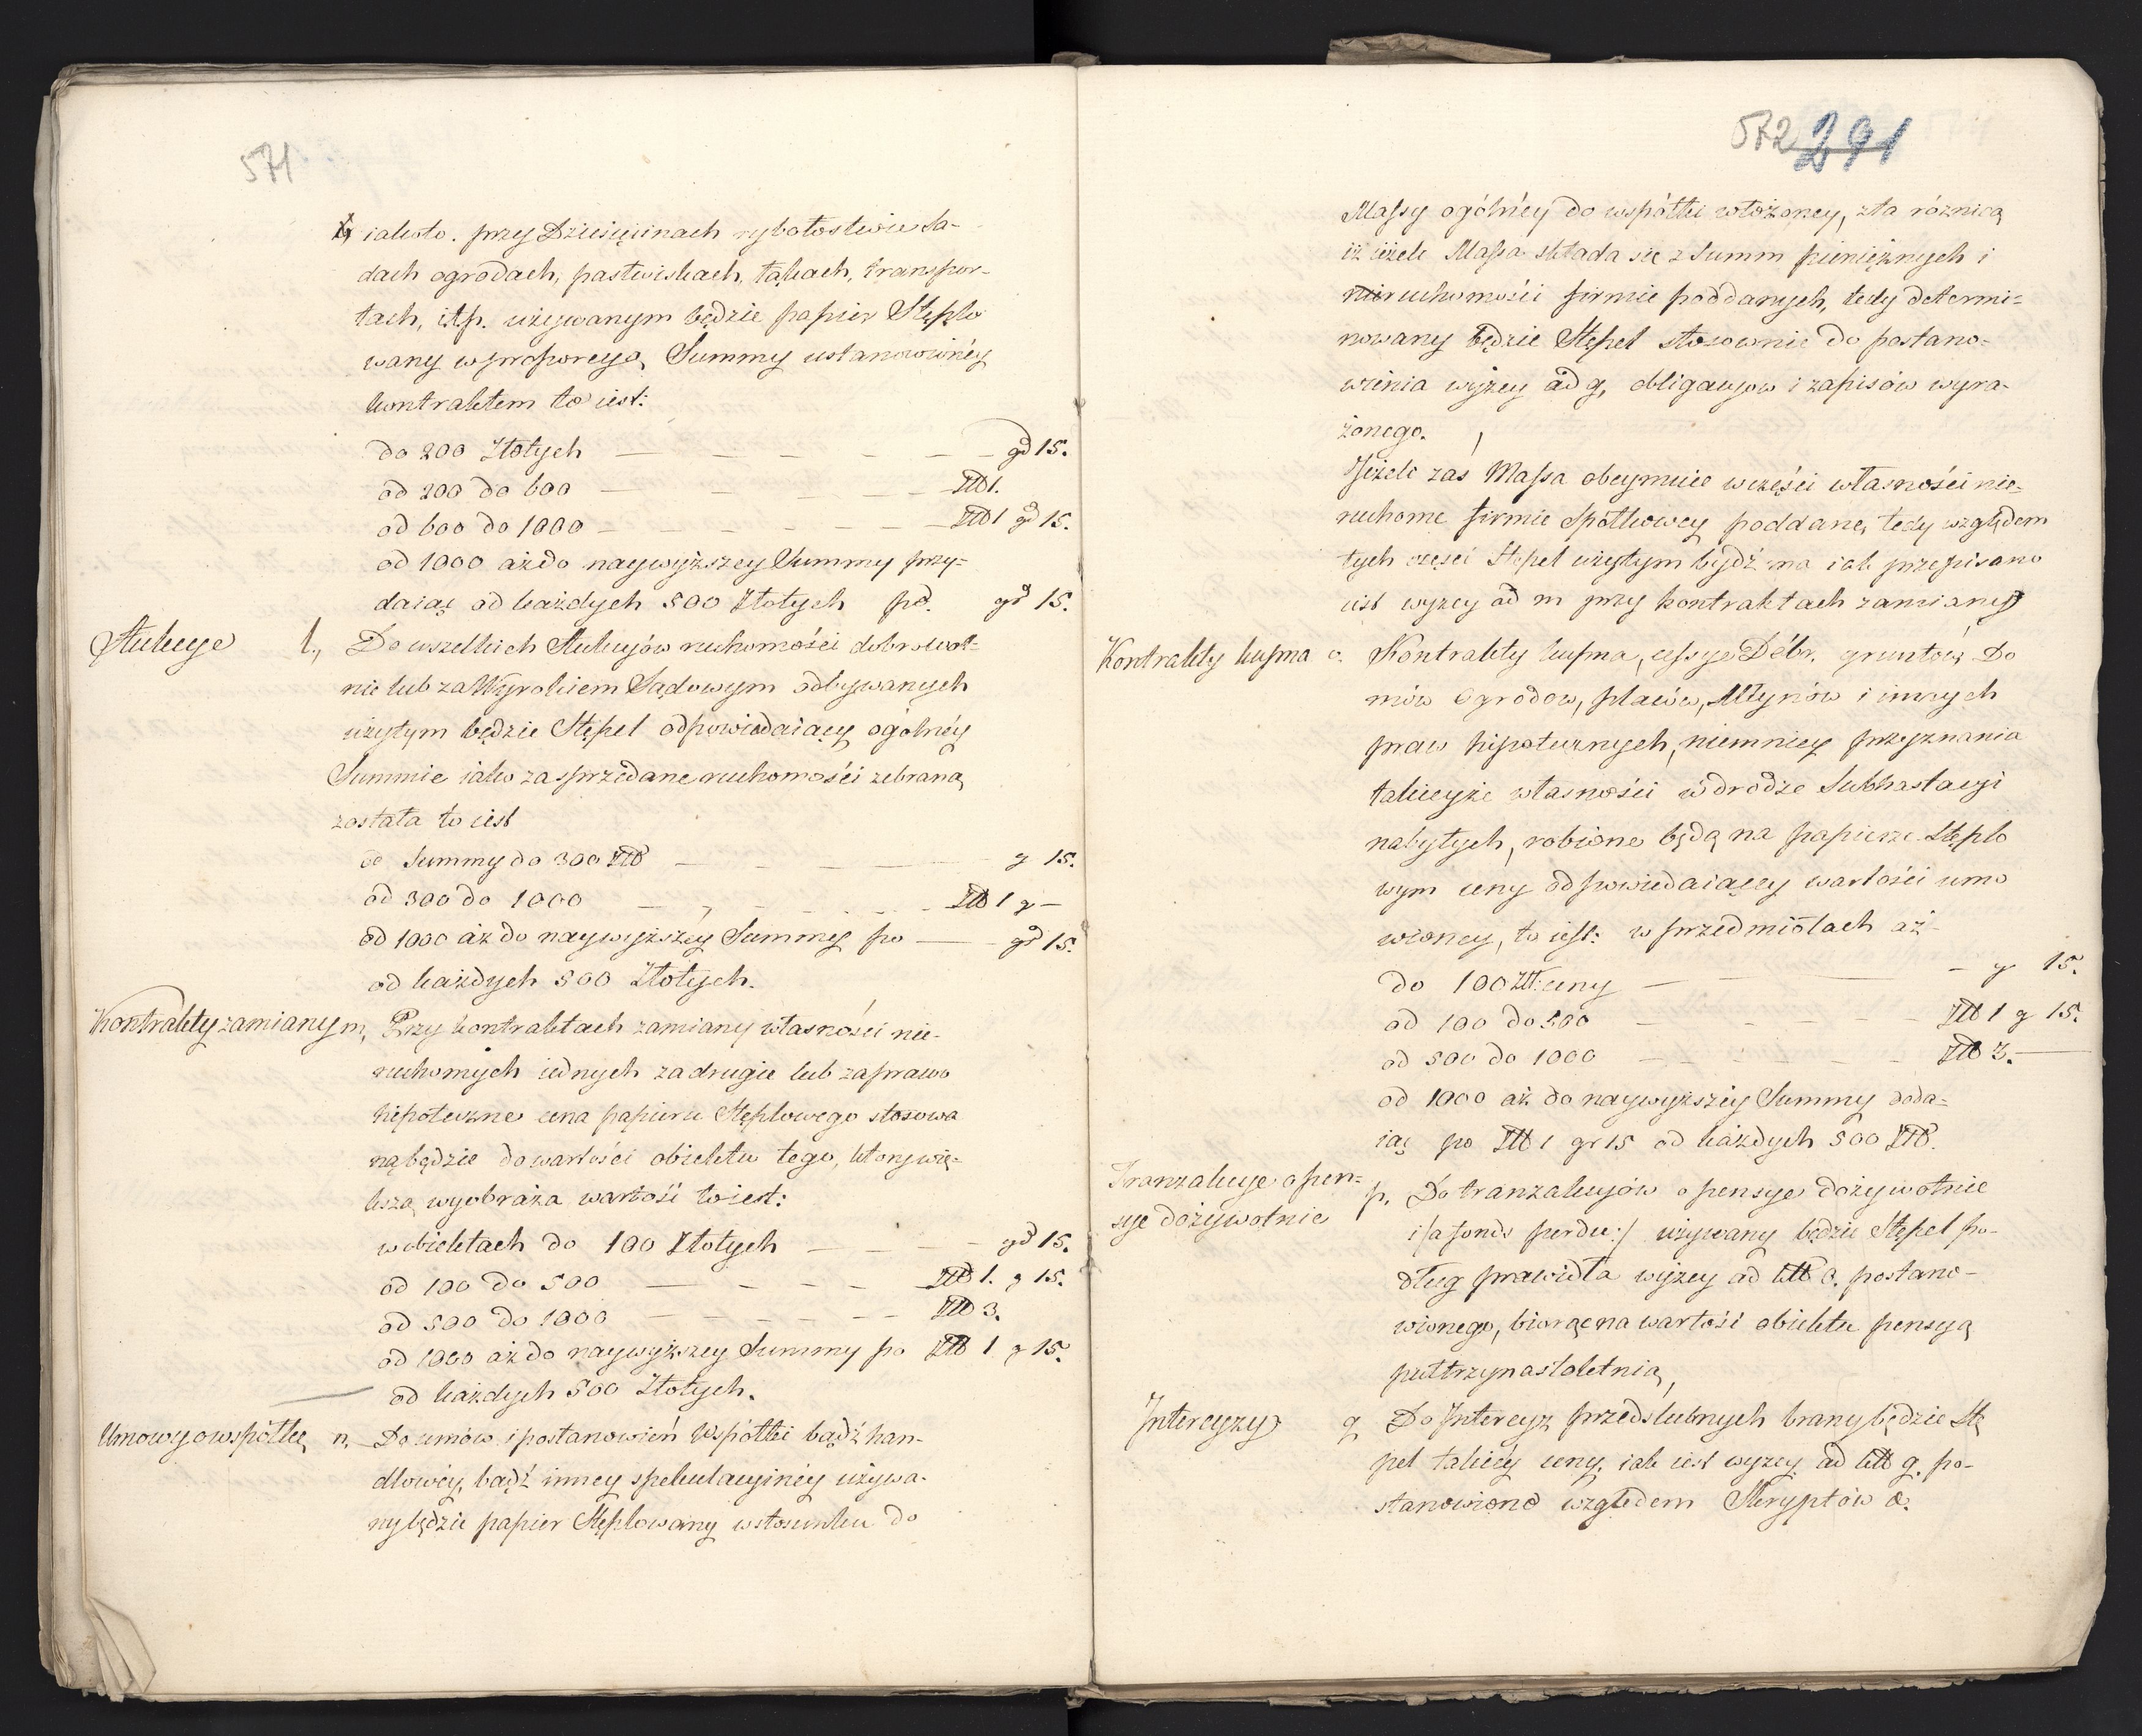 571
iakoto. przy Dziesięcinach rybołostwie Sa-
dach ogrodach, pastwiskach, łąkach, transpor-
tach, itp. używanym będzie papier Stęplo
wany w proporcyą Summy ustanowioney
kontraktem to iest:
do 200 Złotych — — — — — gr 15.
od 200 do 600 — — — — Złł 1.
od 600 do 1000 — — — — — Złł 1 gr 15.
od 1000 aż do naywyższey Summy przy-
daiąc od każdych 500 Złotych po. gr 15.
Aukcye l., Do wszelkich Aukcyów ruchomości dobrowol-
nie lub za Wyrokiem Sądowym odbywanych
użytym będzie Stępel odpowiedaiący ogólnéy
Summie iako za sprzedane ruchomości zebraną
została to iest
od Summy do 300 Złł — — — — g 15.
od 300 do 1000 — — — — Złł 1 g —
od 1000 aż do naywyższéy Summy po — gr 15.
od każdych 500 Złotych.
Kontrakty zamiany m, Przy kontraktach zamiany własności nie-
ruchomych iednych za drugie lub za prawo
hipoteczne cena papieru Stęplowego stosowa
ną będzie do wartości obiektu tego, ktory wię-
kszą wyobraża wartość to iest:
w obiektach do 100 Złotych — — — — gr 15.
od 100 do 500 — — — — Złł 1. g 15.
od 500 do 1000 — — — — — Złł 3.
od 1000 aż do naywyższey Summy po Złł 1 g 15.
od każdych 500 Złotych.
Umowy o wspołkę n, Do umów i postanowień Wspołki bądź han-
dlowéy, bądź inney spekulacyinéy używa-
ny będzie papier Stęplowany w stosunku do
572 291
Massy ogólnéy do wspołki włożoney, z ta róznicą
iż ieżele Massa składa się z Summ pieniężnych i
ruchomości firmie poddanych, tedy determi-
nowany będzie Stępel stosownie do postano-
wienia wyżey ad g, obligacyow i zapisów wyra-
żonego.
Jeżele zaś Massa obeymuie w części własności nie-
ruchome firmie Społkowey poddane, tedy względem
tych części Stępel użytym bydź ma iak przepisano
iest wyzey ad m przy kontraktach zamiany
Kontrakty kupna o. Kontrakty kupna, cessye Dóbr, gruntów, Do
mów Ogrodow, placów, Młynów i innych
praw hipotecznych, niemniey przyznania
takieyże własności w drodze Subhastacyi
nabytych, robione będą na papierze Stęplo
wym ceny odpowiedaiącey wartości umo
wioney, to iest: w przedmiotach aż
do 100 Złł: ceny — — — g 15.
od 100 do 500 — — — — — Złł 1 g 15.
od 500 do 1000 — — — — — Złł 3. —
od 1000 aż do naywyższéy Summy doda-
iąc po Złł 1 gr 15 od każdych 500 Złł.
Tranzakcye o pen-
sye dożywotnie p. Do tranzakcyów o pensye dożywotnie
i /a fonds perdu:/ używany będzie Stępel po-
dług prawidła wyżey ad litt o. postano-
wionego, biorąc na wartość obiektu pensyą
puł trzynastoletnią,
Intercyzy q Do Intercyz przedslubnych brany będzie Stę
pel takiéy ceny, iak iest wyzey ad litt g. po-
stanowiono względem Skryptów &.